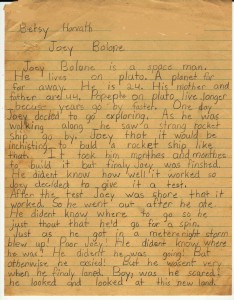 Betsy Horvath
Joey Bolone
Joey Bolone is a space man.
He lives on pluto. A planet far
far away. He is 24. His mother and
father are 44. Popeple on pluto live longer
because years go by faster. One day
Joey decied to go exploring. As he was
walking along he saw a strang rocket
ship go by. Joey that it would be
inchisting to buld a rocket ship like
that. It took him monthes and monthes
to buld it but finaly Joey was finshed.
He dident know how well it worked so
Joey decided to give it a test.
After the test Joey was shore that it
worked. So he went out after he ate.
He dident know where to go so he
just thout that he'd go for a spin.
Just as he got in a meteor night storm
blew up! Poor Joey! He dident know where
he was! He dident he was going! But
otherwise he easied. But he wasent very
when he finaly laned. Boy, was he scared!
he looked and looked at this new land.